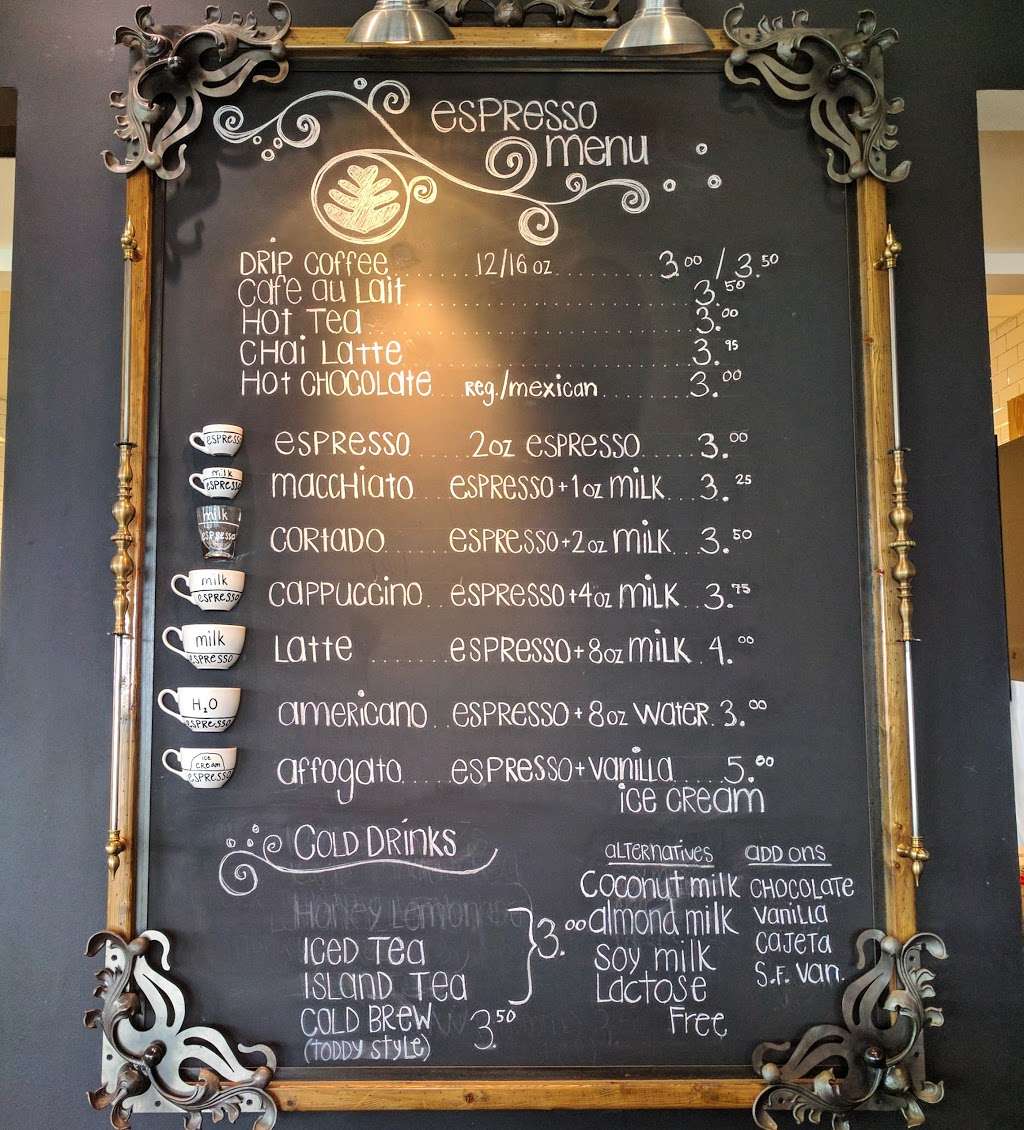 ESPRESSO
menu
DRIP COFFEE........12/16 oz..........3.00 / 3.50
Café au Lait........3.50
HOT TEA........3.00
CHai LaTTe........3.95
HOT CHOCOLATE...Reg./mexican........3.00
ESPRESSO
ESPRESSO.....2oz ESPRESSO.....3.00
milk
ESPRESSO
maccHiato....ESPRESSO+1oz milk...3.25
milk
espresso
CORTADO......ESPRESSO+2oz milk...3.50
milk
ESPRESSO
CAPPUCCINO..ESPRESSO+4oz milk..3.75
milk
ESPRESSO
LaTTe.......ESPRESSO+8oz milk.4.00
H₂O
ESPRESSO
americano..ESPRESSO+8oz water.3.00
ICE
CREAM
ESPRESSO
affogato.....ESPRESSO+vanilla.....5.00
ice cream
COLD DRINKS
Honey Lemon
ICED TEA
ISLAND TEA
3.00
COLD BREW 3.50
(TODDY STYLE)
ALTERNATIVES
Coconut milk
almond milk
soy milk
Lactose
Free
ADD ONS
CHOCOLATE
vanilla
CAJETA
S.F. VAN.